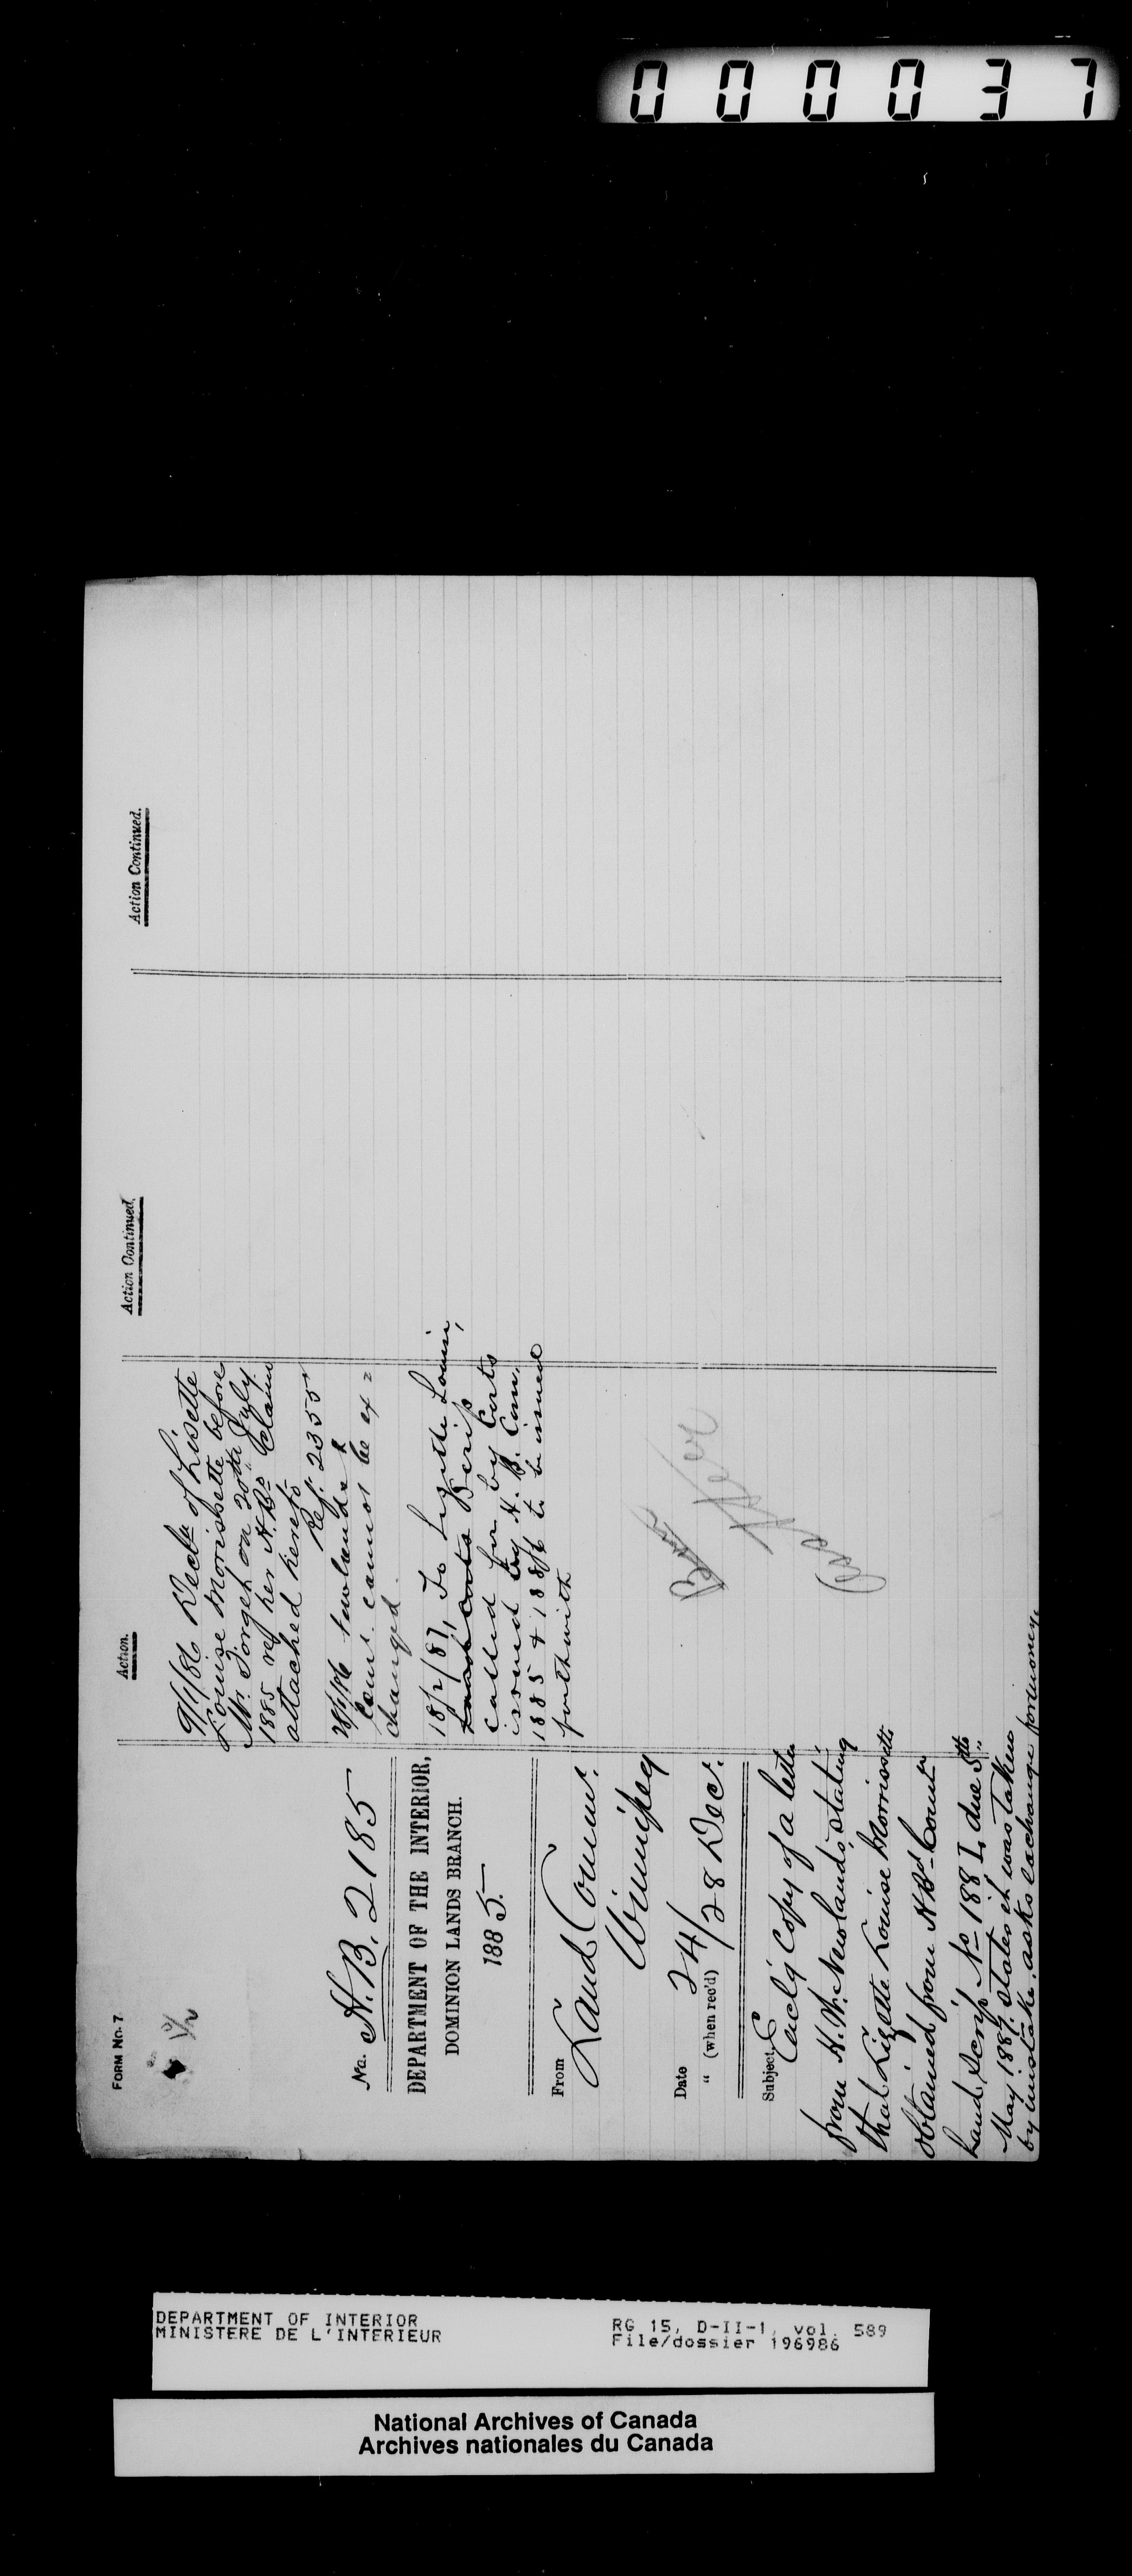 000037
FORM No. 7
No. H.B. 2185
DEPARTMENT OF THE INTERIOR,
DOMINION LANDS BRANCH.
1885.
From
Land Commr.
Winnipeg
Date 24/
" (when rec'd) 28 Dec.
Subject, Encl'g Copy of a letter
from H. W. Newlands, stating
that Lizette Louise Morrissette
obtained from H.Bd. Comr
Land Scrip No 188 I, due 5th
May 1887, states it was taken
by mistake, asks exchange for money.
Action.
9/1/86 Decln of Lisette
Louise Morrissette before
Mr. Forget on 20th July
1885 ref her H.Bd. Claim
attached hereto
Ref. 2355
28/1/86 Newlands &
Comr. cannot be ex=
changed.
18/2/87, To Lizette Louise,
Scrip
called for by Certs
issued by H. B. Com.
1885 & 1886 to be issued
forthwith
Action Continued.
Action Continued.
DEPARTMENT OF INTERIOR
MINISTERE DE L'INTERIEUR
RG 15, D-II-1, vol. 589
File/dossier 196986
National Archives of Canada
Archives nationales du Canada